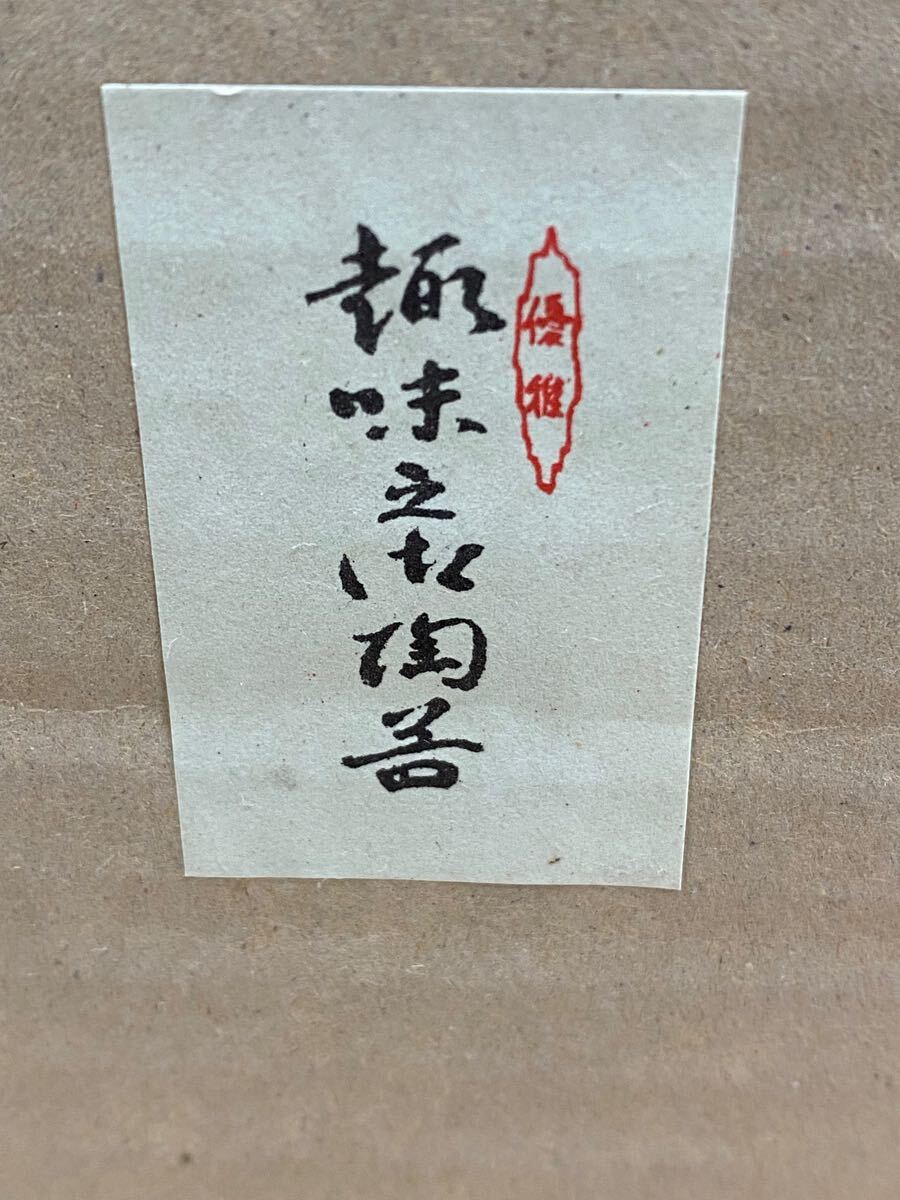 優雅
趣味之御陶器